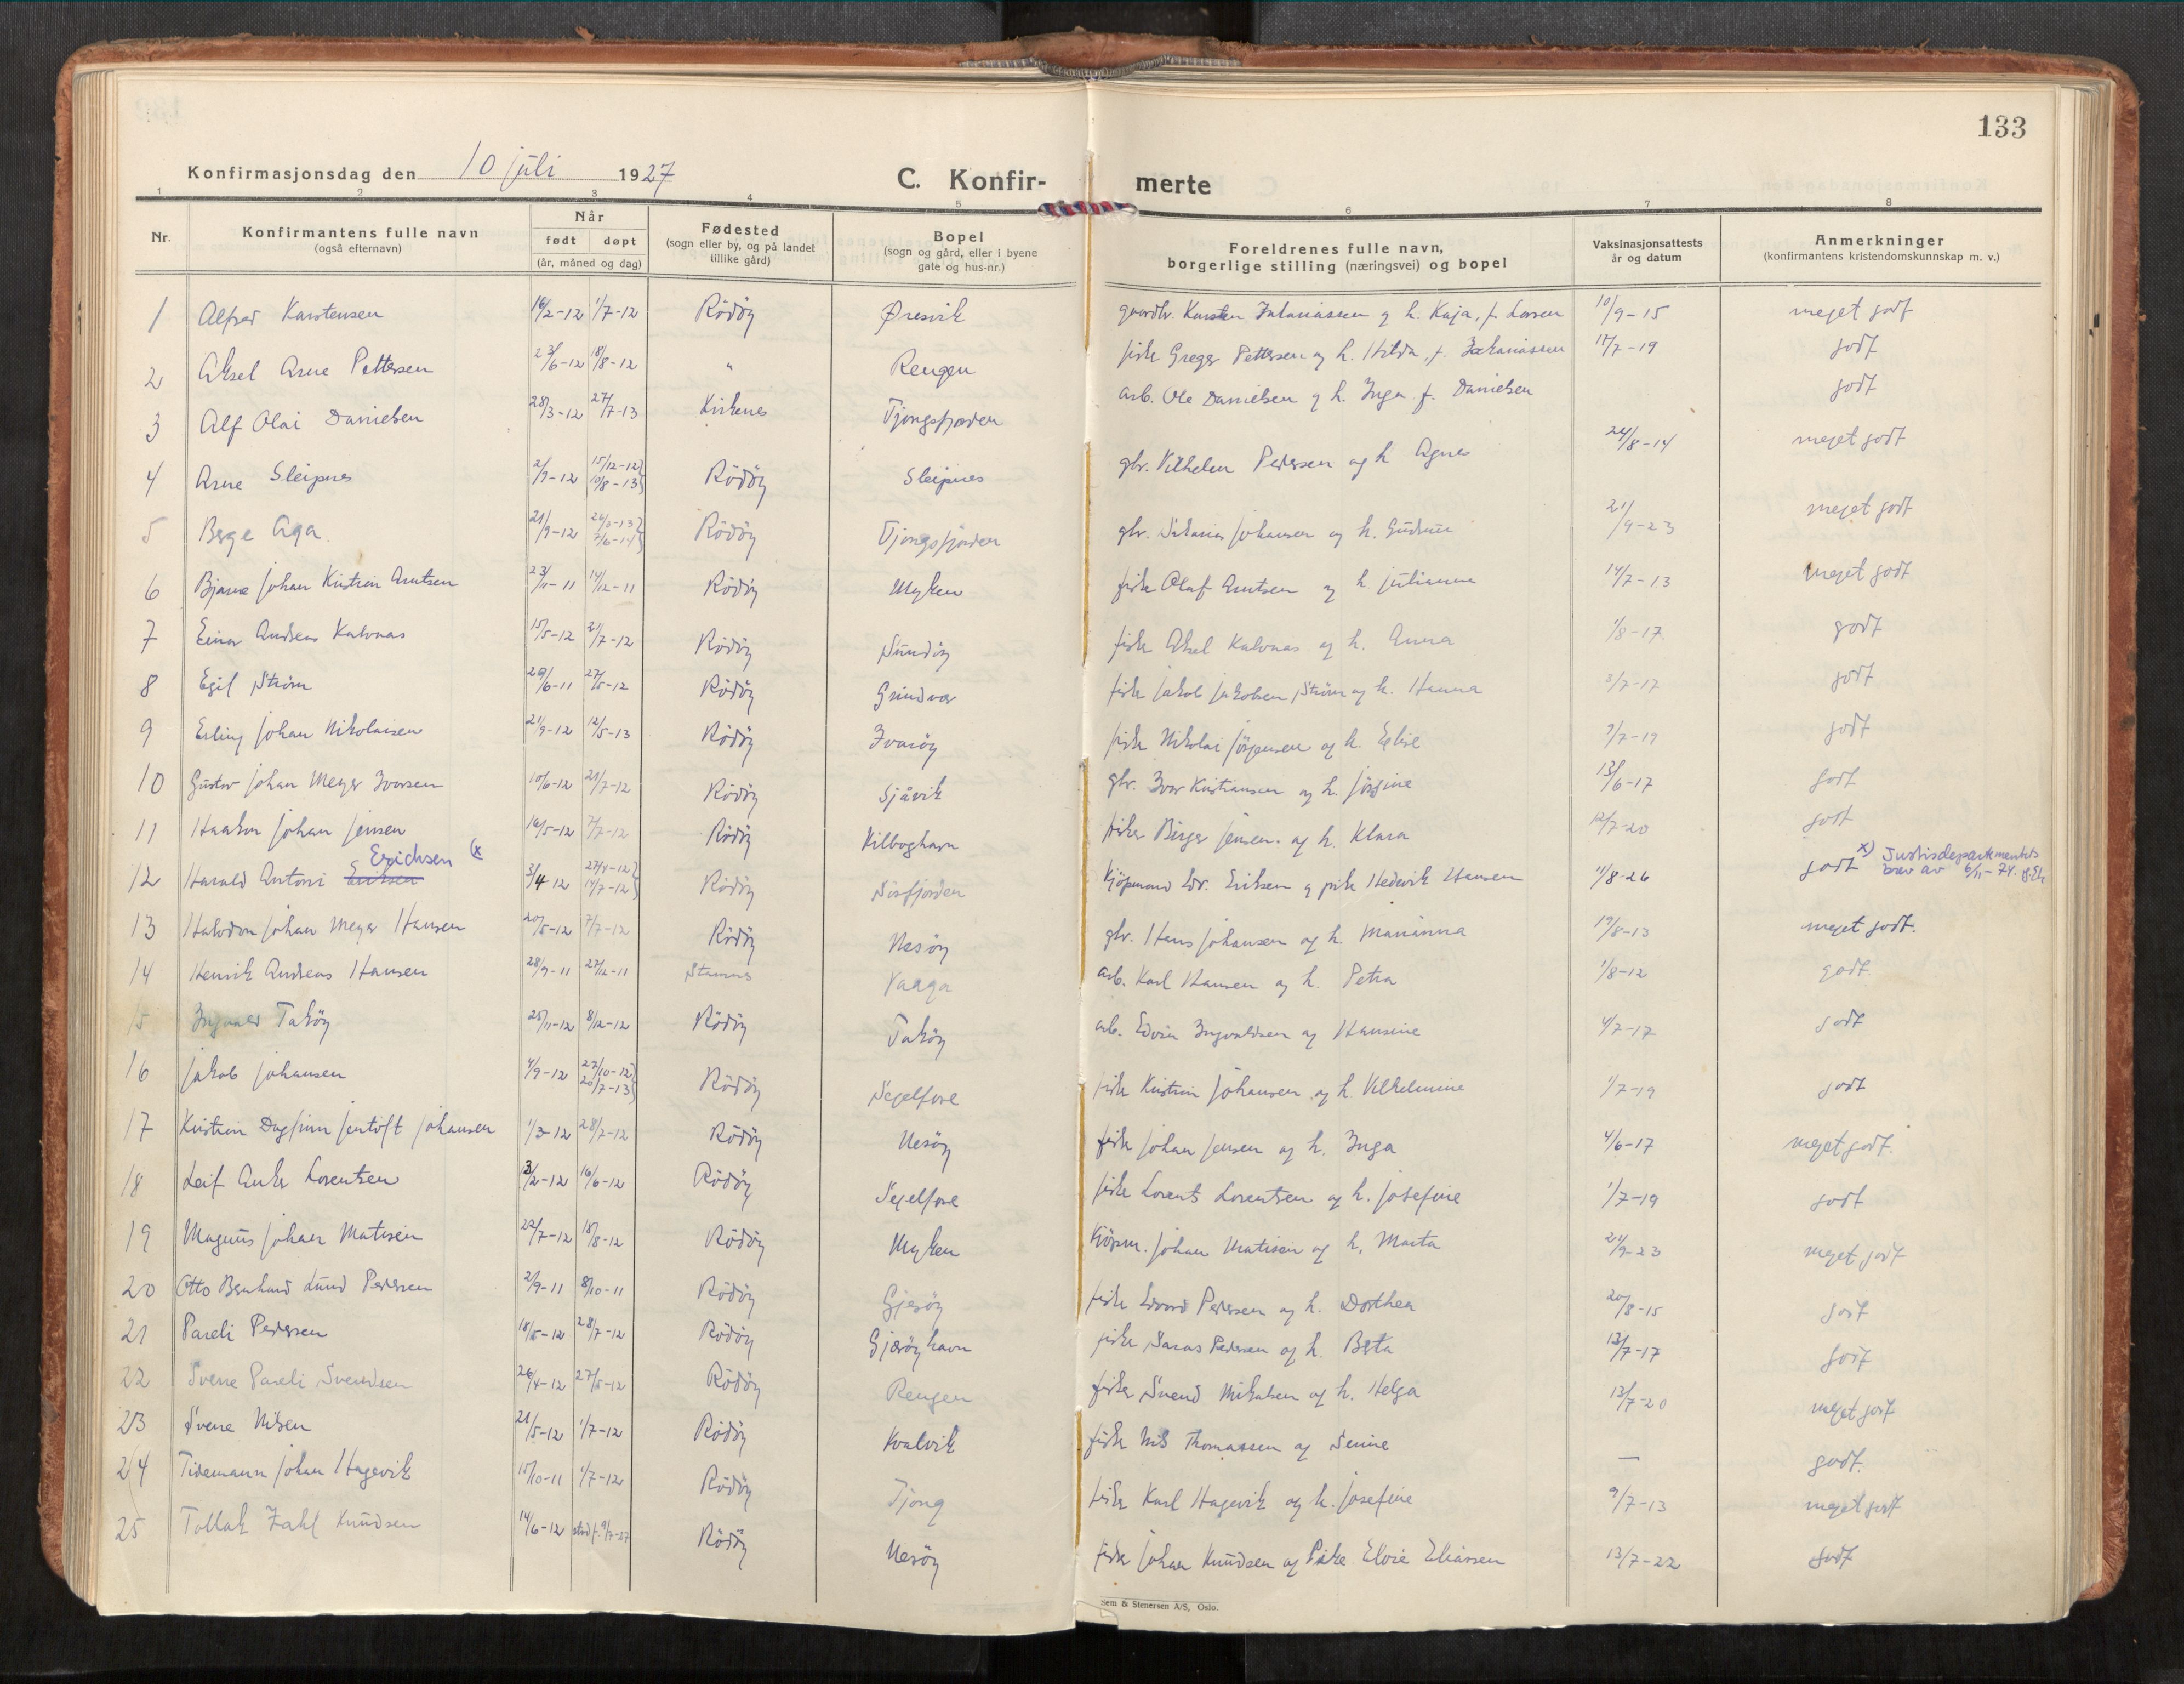 133
Konfirmasjonsdag den 10 juli 1927
C. Konfir- merte
1 2 3 4 5 6 7 8
Nr. Konfirmantens fulle navn (også efternavn) Når født døpt (år, måned og dag) Fødested (sogn eller by, og på landet tillike gård) Bopel (sogn og gård, eller i byene gate og hus-nr.) Foreldrenes fulle navn, borgerlige stilling (næringsvei) og bopel Vaksinasjonsattests år og datum Anmerkninger (konfirmantens kristendomskunnskap m. v.)
1 Alfred Karstensen 16/2-12 1/7-12 Rödöy Øresvik Karsten Zakariassen og h. Kaja, f. Larsen 10/9-15 meget godt
2 Aksel Arne Pettersen 23/6-12 18/8-12 " Rengen fisk Greger Pettersen og h. Hilda f. Zakariassen 17/7-19 godt
3 Alf Olai Danielsen 28/3-12 27/7-13 Kirkenes Tjongsfjorden arb. Ole Danielsen og h. Inga f. Danielsen godt
4 Arne Sleipnes 2/9-12 15/12-12 10/8-13 Rödöy Sleipnes gbr. Vilhelm Pedersen og h. Agnes 24/8-14 meget godt
5 Berge Aga 21/9-12 7/6-14 Rödöy Tjongsfjorden gbr. Johansen og h. Gudrun 21/9-23 meget godt
6 Bjarne Johan Kristian Arntsen 23/11-11 14/12-11 Rödöy Myken fisk Olaf Arntsen og h. Julianna 14/7-13 meget godt
7 Einar Andreas Kalvnas 15/5-12 21/7-12 Rödöy Sundöy fisk Aksel Kalvnas og h. Anna 1/8-17 godt
8 Egil Ström 20/6-11 27/5-12 Rödöy Grindvær fisk Jakob Jakobsen Ström og h. Hanna 3/7-17 godt
9 Erling Johan Nikolaisen 21/9-12 12/5-13 Rödöy Ivaröy fisk Nikolai Jörgensen og h. Elise 9/7-19 godt
10 Gustav Johan Meyer Ivarsen 10/6-12 21/7-12 Rödöy Sjåvik gbr. Ivar Kristiansen og h. Jörgine 13/6-17 godt
11 Haakon Johan Jensen 16/5-12 7/7-12 Rödöy Kilboghavn fisker Birger Jensen og h. Klara 12/7-20 godt
12 Harald Antoni Eriksen Erichsen x) 3/4-12 27/4-12 14/7-12 Rödöy Sörfjorden Kjöpmand Edv. Eriksen og pike Hedevik Hansen 11/8-26 godt x) Justisdepartementets
brev av 6/11-74.
13 Halvdan Johan Meyer Hansen 20/5-12 7/7-12 Rödöy Nesöy gbr. Hans Johansen og h. Marianna 19/8-13 meget godt.
14 Henrik Andreas Hansen 28/9-11 27/12-11 Stamnes Vaaga arb. Karl Hansen og h. Petra 1/8-12 godt.
15 Ingvald Taköy 25/11-12 8/12-12 Rödöy Taköy arb. Edvin Ingvaldsen og Hansine 4/7-17 godt
16 Jakob Johansen 4/9-12 27/10-12 20/7-13 Rödöy Segelfore fisk Kristian Johansen og h. Vilhelmine 1/7-19 godt
17 Kristian Dagfinn Jentoft Johansen 1/3-12 28/7-12 Rödöy Nesöy fisk Johan Jensen og h. Inga 4/6-17 meget godt.
18 Leif Anker Lorentsen 16/6-12 Rödöy Segelfore fisk Lorents Lorentsen og h. Josefine 1/7-19 godt
19 Magnus Johan Matisen 22/7-12 18/8-12 Rödöy Myken Kjöpm. Johan Matisen og h. Marta 21/9-23 meget godt
20 Otto Bernhard Lund Pedersen 2/9-11 8/10-11 Rödöy Gjeröy fisk Edvard Pedersen og h. Dorthea 20/8-15 godt
21 Pareli Pedersen 18/5-12 28/7-12 Rödöy Gjeröyhavn fisk Pedersen og h. Berta 13/7-17 godt
22 Sverre Pareli Svendsen 26/4-12 27/5-12 Rödöy Rengen fisker Svend Mikalsen og h. Helga 13/7-20 meget godt
23 Sverre Nilsen 21/5-12 1/7-12 Rödöy Kvalvik fisk Nils Thomassen og Senine — godt.
24 Tidemann Johan Hagevik 15/10-11 1/7-12 Rödöy Tjong fisk Karl Hagevik og h. Josefine 9/7-13 meget godt
25 Tollak Zahl Knudsen 14/6-12 stad f. 9/7-27 Rödöy Nesöy fisk Johan Knudsen og Pike Eliassen 13/7-22 godt
Sem & Stenersen A/S, Oslo.